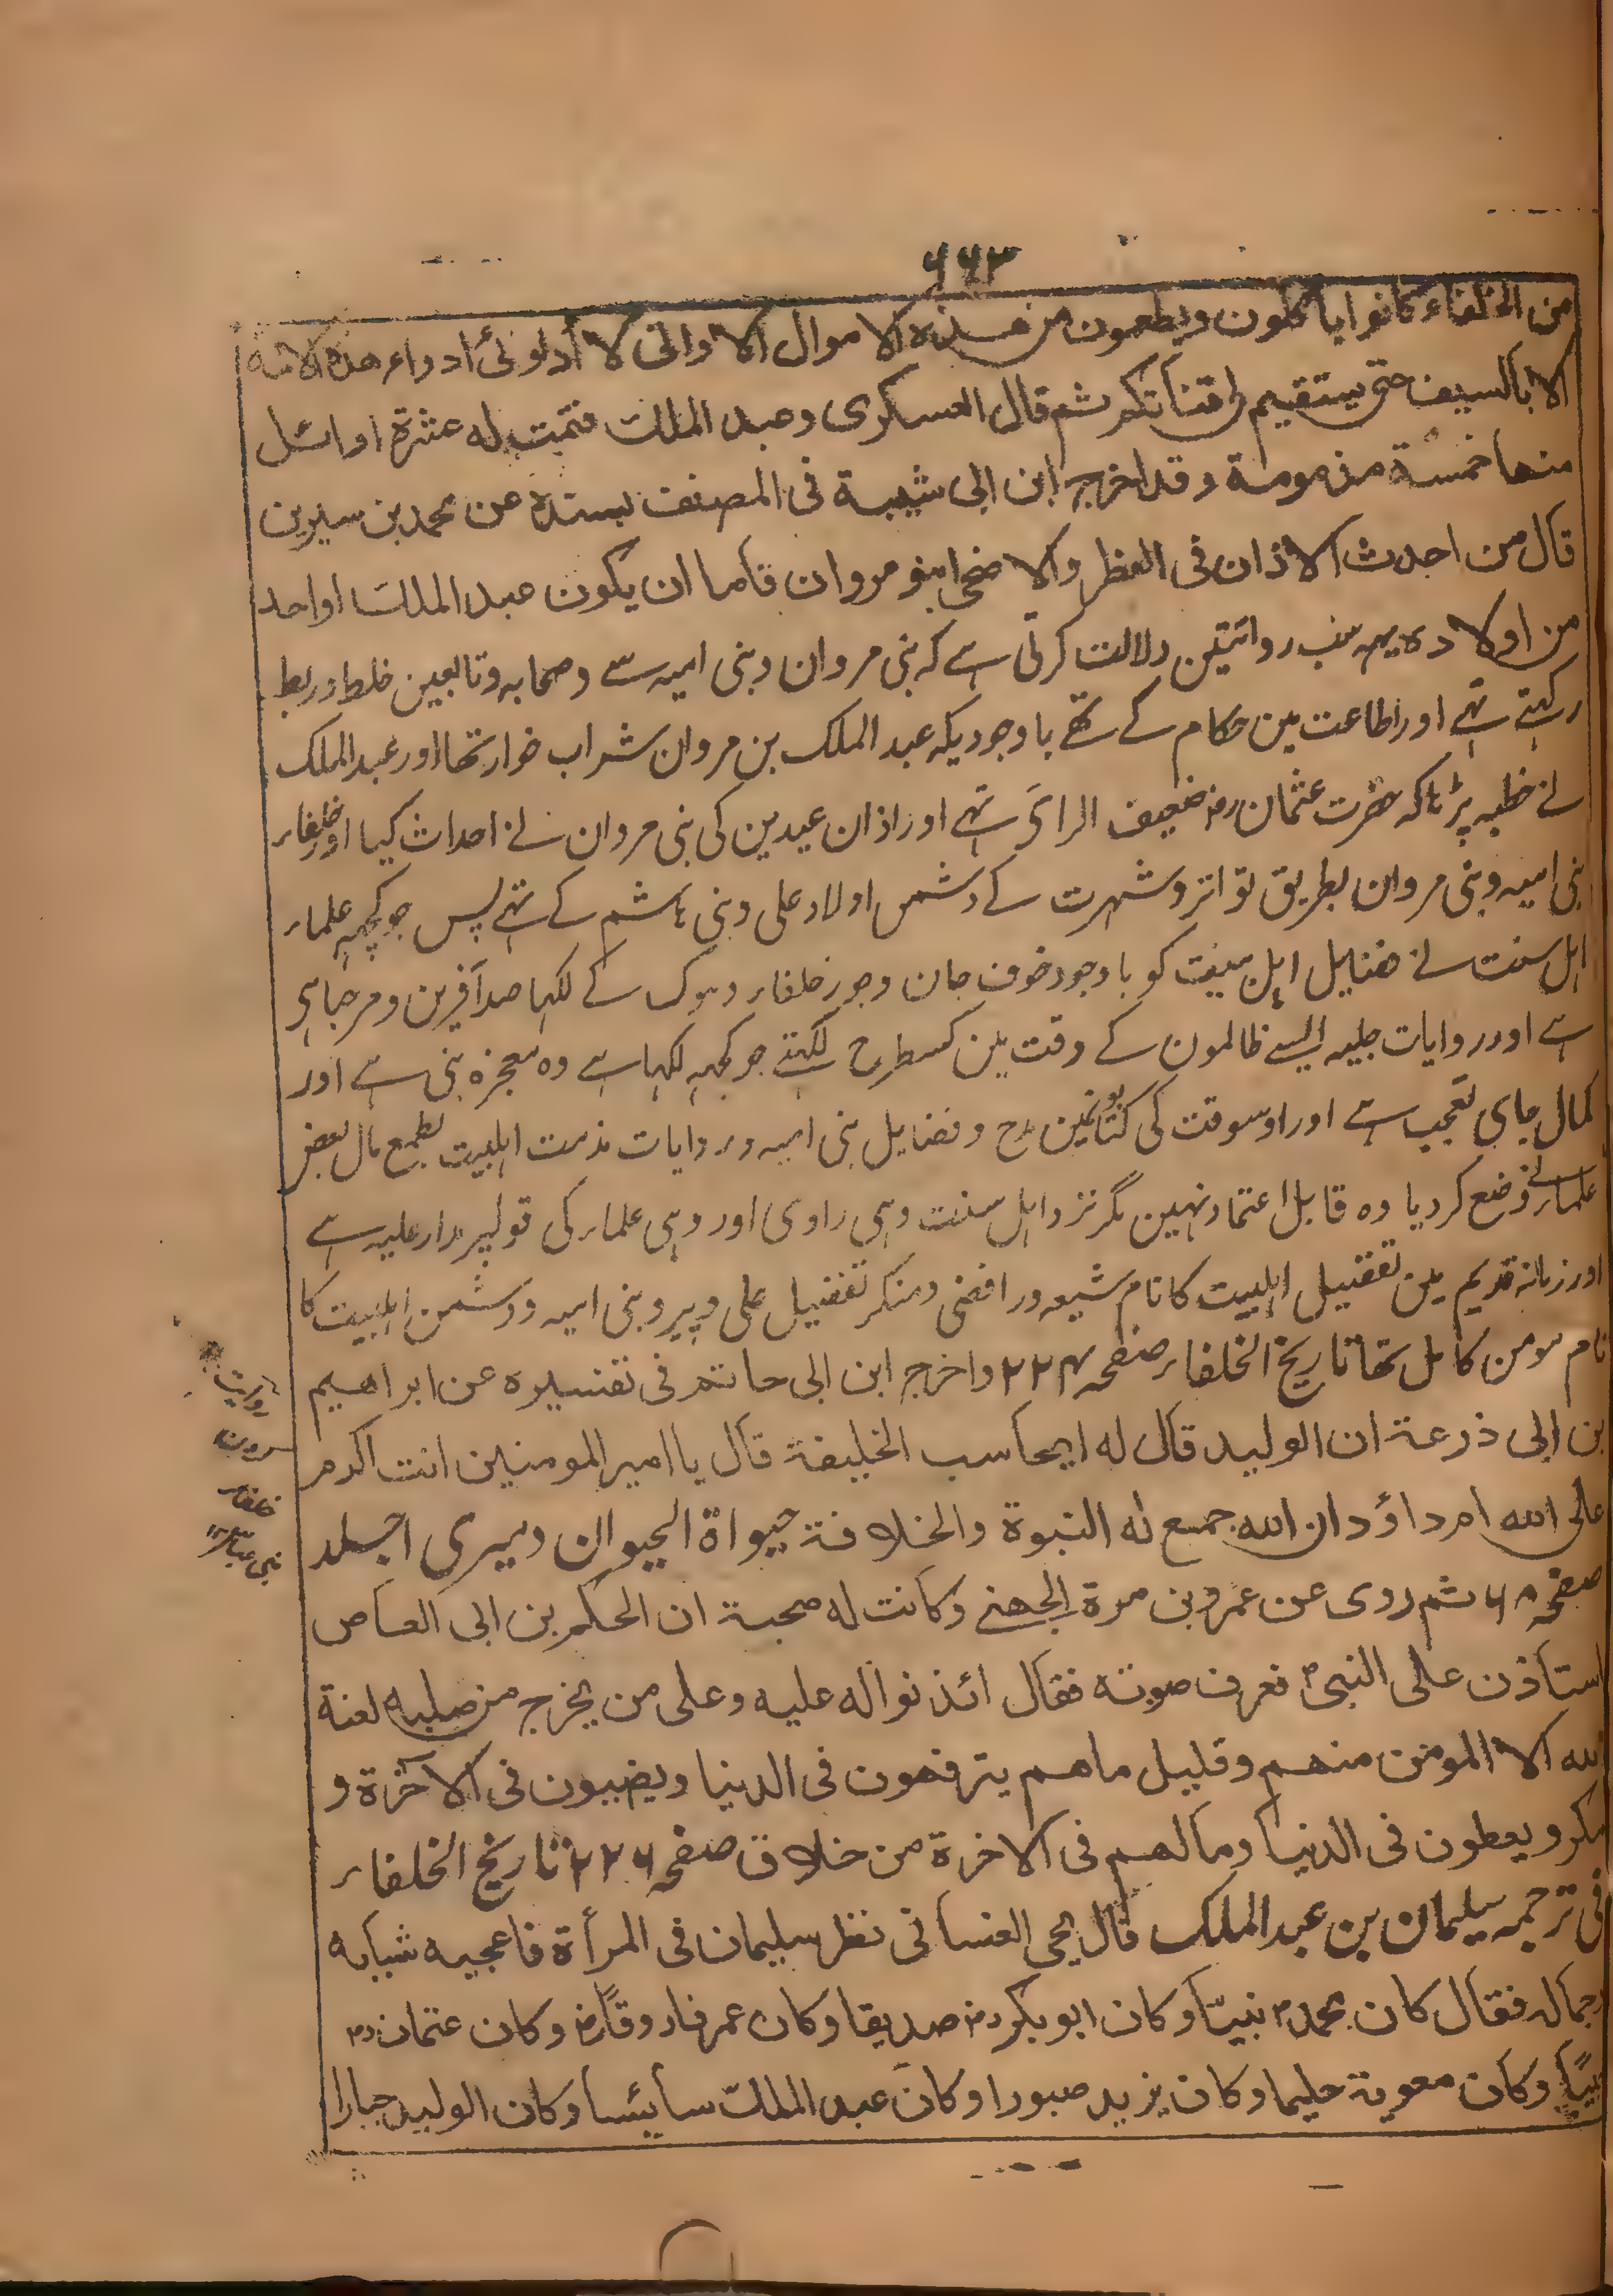 ۶۶۳
من الخلفاء كانوا ياكلون ويطعمون من هذه الاموال الا وانى لا اداوى ادواء هذه الامة
الا بالسيف حتى يستقيم لى قناتكم ثم قال العسكرى وعبد الملك فتمت له عشرة اوائل
منها خمسة مذمومة وقد اخرج ابن ابى شيبة فى المصنف بسنده عن محمد بن سيرين
قال من احدث الاذان فى الفطر والاضحى بنو مروان فاما ان يكون عبد الملك او احد
من اولاده یہہ سب روائتین دلالت کرتی ہے کہ بنی مروان و بنی امیہ سے و صحابہ و تابعین خلط و ربط
رکہتے تہے اور اطاعت مین حکام کے تھے باوجودیکہ عبد الملک بن مروان شراب خوار تھا اور عبد الملک
نے خطبہ پڑہا کہ حضرت عثمان رض ضعیف الرای تہے اور اذان عیدین کی بنی مروان نے احداث کیا اور خلفاء
بنی امیہ و بنی مروان بطریق تواتر و شہرت کے دشمن اولاد علی و بنی ہاشم کے تہے پس جو کچہہ علماء
اہل سنت نے فضایل اہل بیت کو باوجود خوف جان و جور خلفاء و ملوک کے لکہا صد آفرین و مرحبا ہی
ہے اور روایات جلیہ ایسے ظالمون کے وقت مین کسطرح لکہتے جو کچہہ لکہا ہے وہ معجزہ نبی ہے اور
کمال جای تعجب ہے اور اوسوقت کی کتابونمین مدح و فضایل بنی امیہ و روایات مذمت اہلبیت بطمع مال بعض
علماء نے وضع کر دیا وہ قابل اعتماد نہین مگر نزد اہل سنت وہی راوی اور وہی علماء کی قولپر مدار علیہ ہے
اور زمانہ قدیم مین تفضیل اہلبیت کا نام شیعہ و رافضی و منکر تفضیل علی و پیرو بنی امیہ و دشمن اہلبیت کا
نام مومن کامل تھا تاریخ الخلفاء صفحہ ۲۲۴ واخرج ابن ابى حاتم فى تفسيره عن ابراهيم
بن ابى ذرعة ان الوليد قال له ايحاسب الخليفة قال يا امير المومنين انت اكرم
على الله ام داؤد ان الله جمع له النبوة والخلافة حيواة الحيوان دميرى اجلد
صفحہ ۶۸ ثم روى عن عمرو بن مرة الجهنے وكانت له صحبة ان الحكم بن ابى العاص
استاذن على النبى فعرف صوته فقال ائذنوا له عليه وعلى من يخرج من صلبه لعنة
الله الا المومن منهم وقليل ماهم يترفهون فى الدنيا ويضيبون فى الآخرة و
مكر ويعطون فى الدنيا ومالهم فى الاخرة من خلاق صفحہ ۲۲۶ تاریخ الخلفاء
فی ترجمہ سلیمان بن عبد الملک قال يحيى الغسانى نظر سليمان فى المرأة فاعجبه شبابه
وجماله فقال كان محمد نبيّا وكان ابوبكر رض صديقا وكان عمر فاروقا رض وكان عثمان رض
حييّا وكان معوية حليما وكان يزيد صبورا وكان عبد الملك سائسا وكان الوليد جبارا
خلفاء